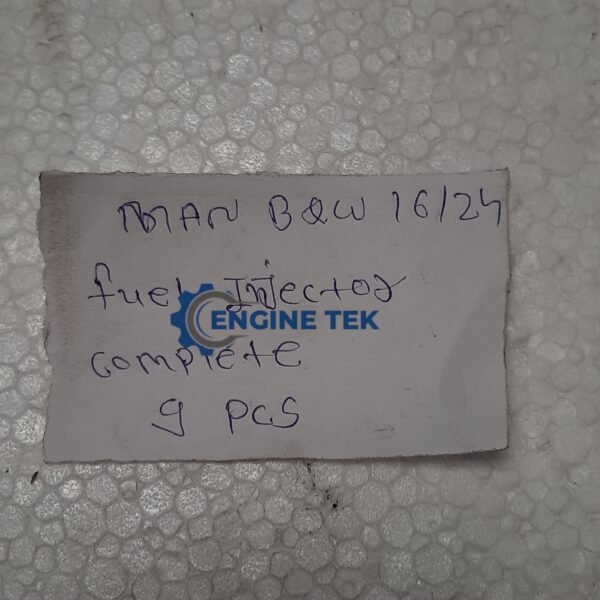 MAN B&W 16/24
fuel Injector
ENGINE TEK
complete
9 pcs